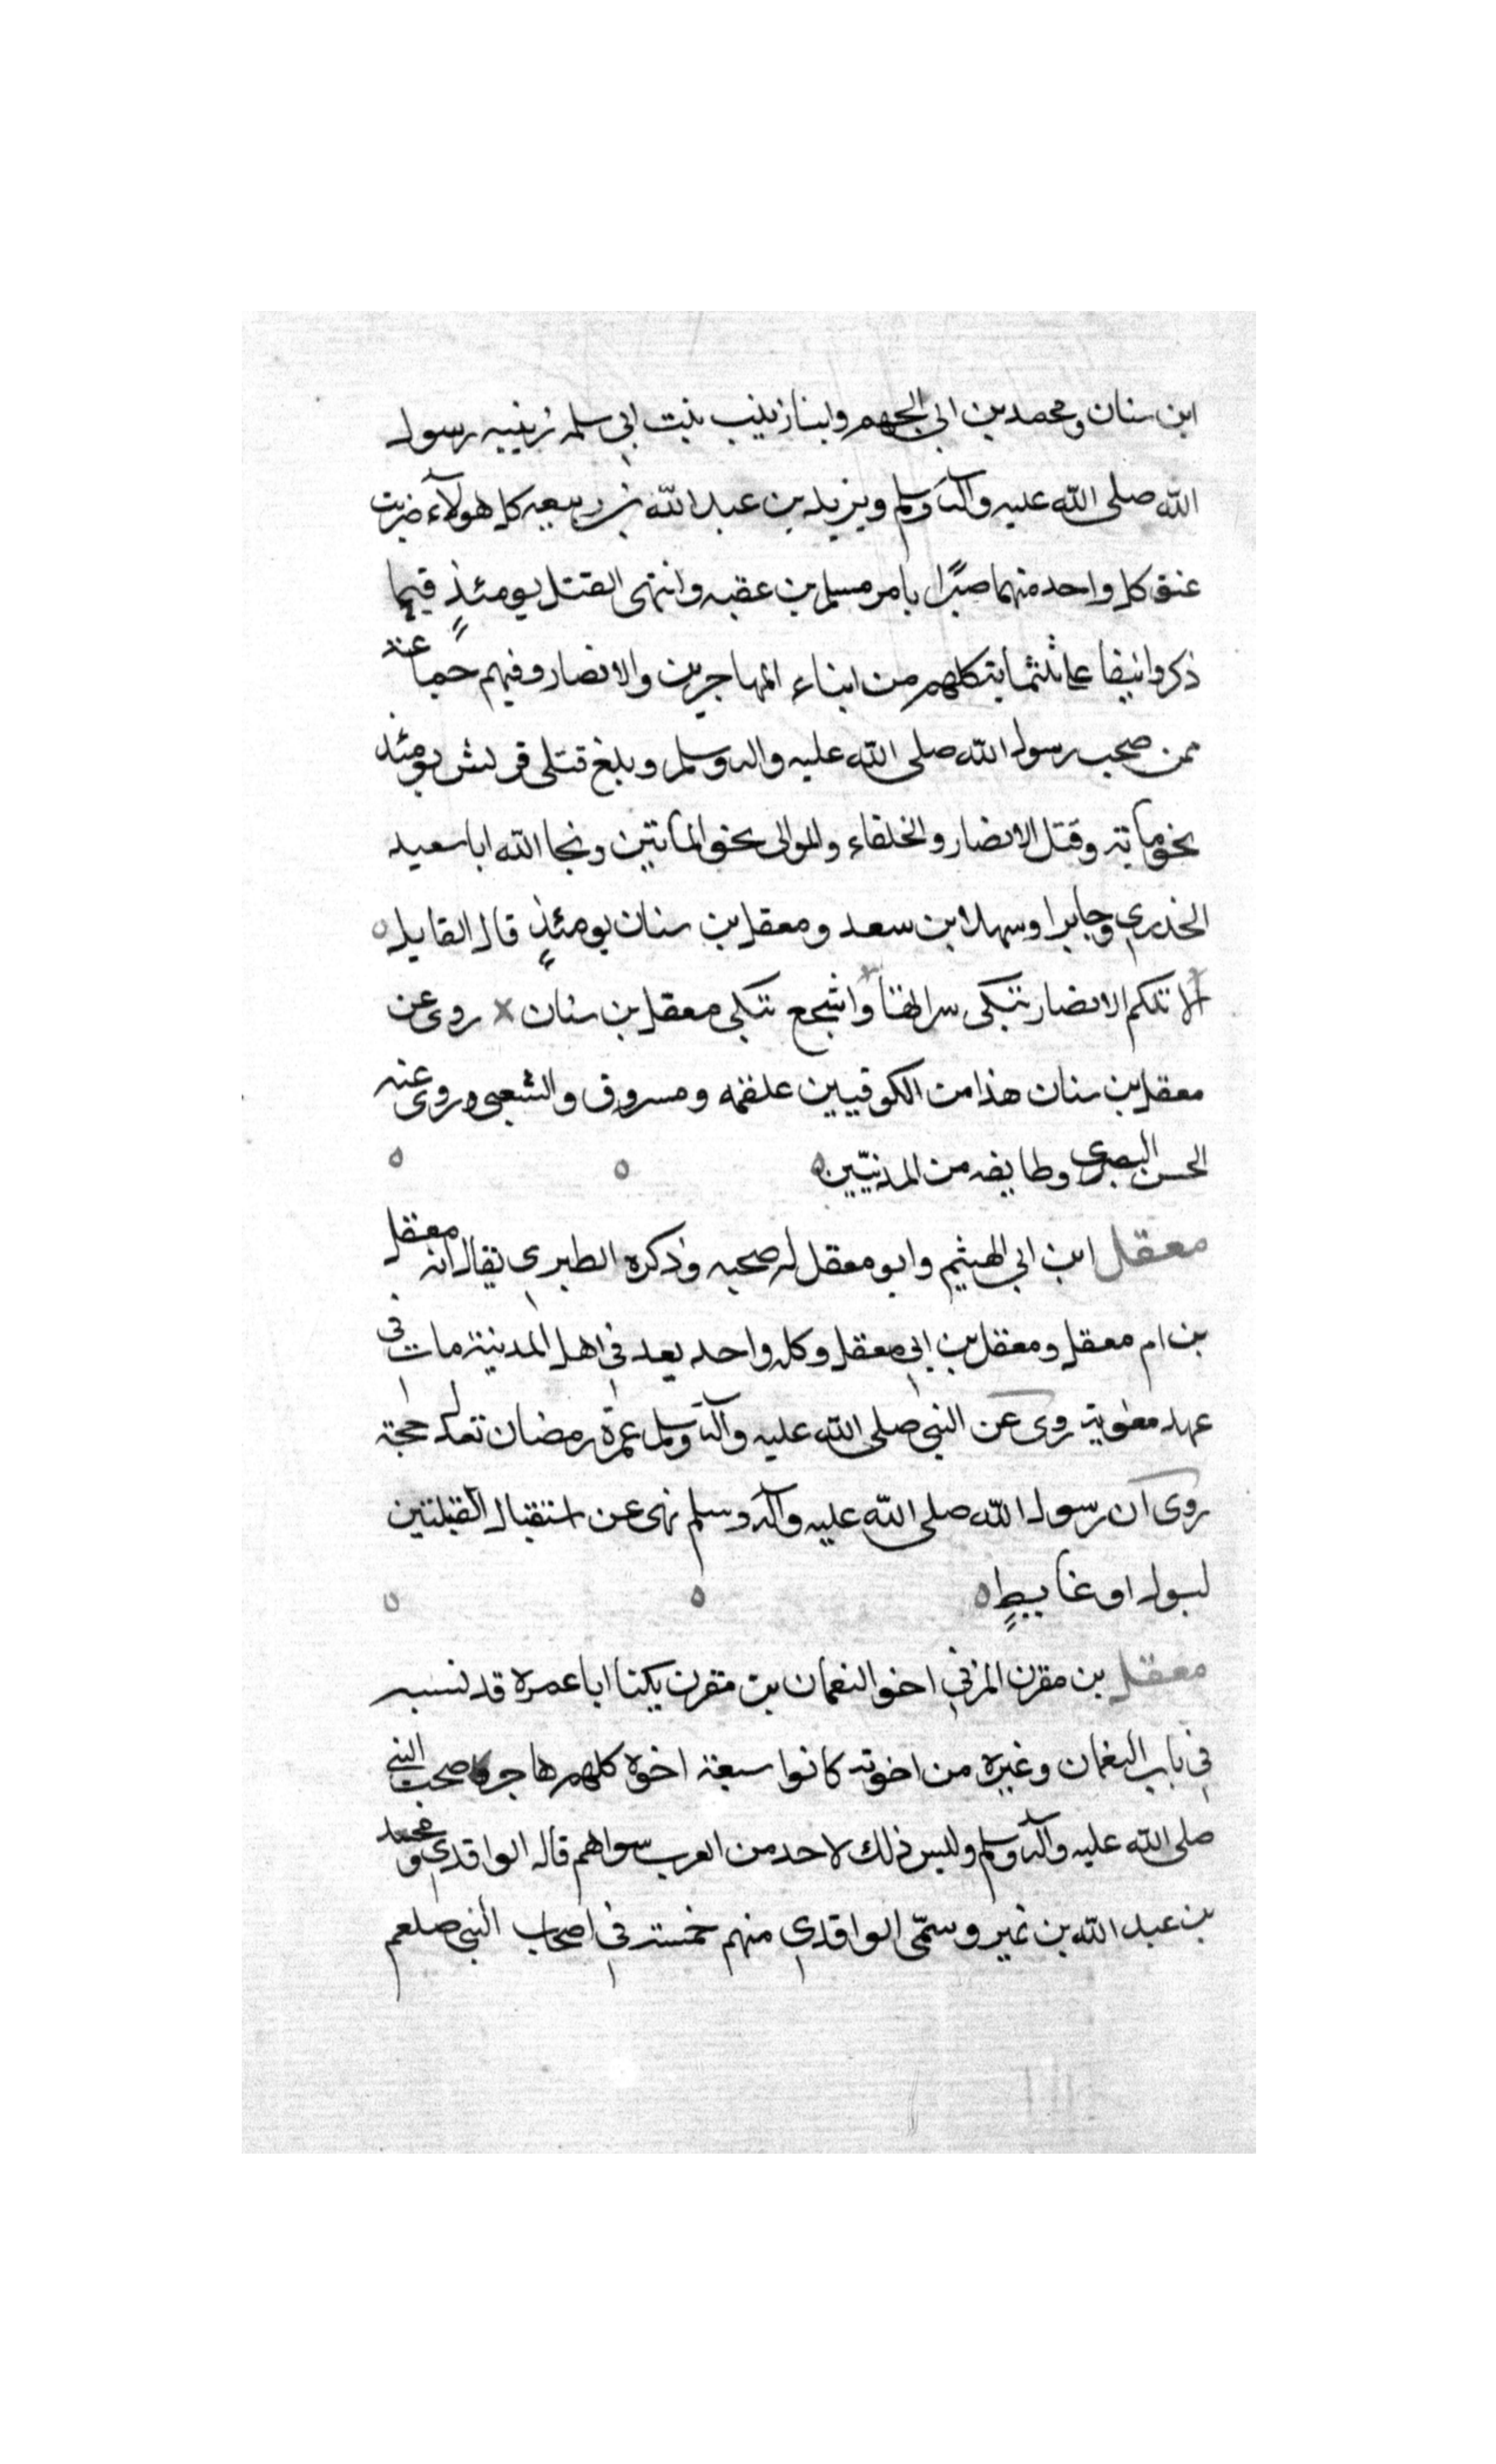 ابن سنان ومحمد بن ابي الجهم وابنا زينب بنت ابي سلمه زبيبه رسول
الله صلى الله عليه وآله وسلم ويزيد بن عبد الله بن ربيعه كل هولآء ضربت
عنق كل واحد منهما صبرًا بامر مسلم بن عقبه وانتهى القتل يومئذٍ فيما
ذكروا نيفا على ثلثمايتكلهم من ابناء المهاجرين والانصار وفيهم جماعة
ممن صحب رسول الله صلى الله عليه واله وسلم وبلغ قتلى قريش يومئذ
نحو ماية وقتل الانصار والحلفاء والموالى نحو المأتين ونجا الله ابا سعيد
الخدري وجابرا وسهلا بن سعد ومعقل بن سنان يومئذٍ قال القايل
الا تلكم الانصار تبكى سراتها واشجع تبكى معقل بن سنان روى عن
معقل بن سنان هذا من الكوفيين علقمه ومسروق والشعبى وروى عنه
الحسن البصري وطايفه من المدنيّين
معقل ابن ابي الهيثم وابو معقل له صحبه وذكره الطبري يقال انه معقل
بن ام معقل ومعقل بن ابي معقل وكل واحد يعد في اهل المدينة مات في
عهد معوية روى عن النبي صلى الله عليه وآله وسلم عمرة رمضان تعدل حجة
روى ان رسول الله صلى الله عليه وآله وسلم نهى عن استقبال القبلتين
لبول او غايطٍ
معقل بن مقرن المزني اخو النعمان بن مقرن يكنا ابا عمرة قد نسبه
في باب النعمان وغيره من اخوته كانوا سبعة اخوة كلهم هاجر وصحب النبي
صلى الله عليه وآله وسلم وليس ذلك لاحد من العرب سواهم قاله الواقدي ومحمد
بن عبد الله بن نمير وسمّى الواقدي منهم خمسة في اصحاب النبي صلعم